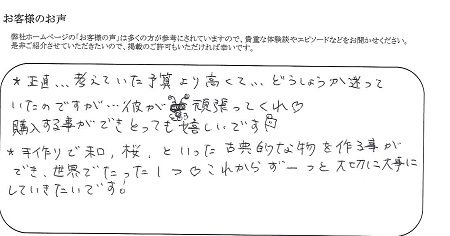 お客様のお声
弊社ホームページの「お客様の声」は多くの方が参考にされていますので、貴重な体験談やエピソードなどをお聞かせください。
是非ご紹介させていただきたいので、掲載のご許可もいただければ幸いです。
*正直…考えていた予算より高くて…どうしようか迷って
いたのですが…彼が頑張ってくれ♡
購入する事ができとっても嬉しいです
*手作りで和、桜、といった古典的な物を作る事が
でき、世界でたった1つ♡これからずーっと大切に大事に
していきたいです!